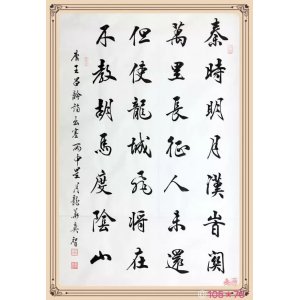 秦時明月漢時關
萬里長征人未還
但使龍城飛將在
不教胡馬度陰山
唐王昌齡詩出塞丙申
105*70